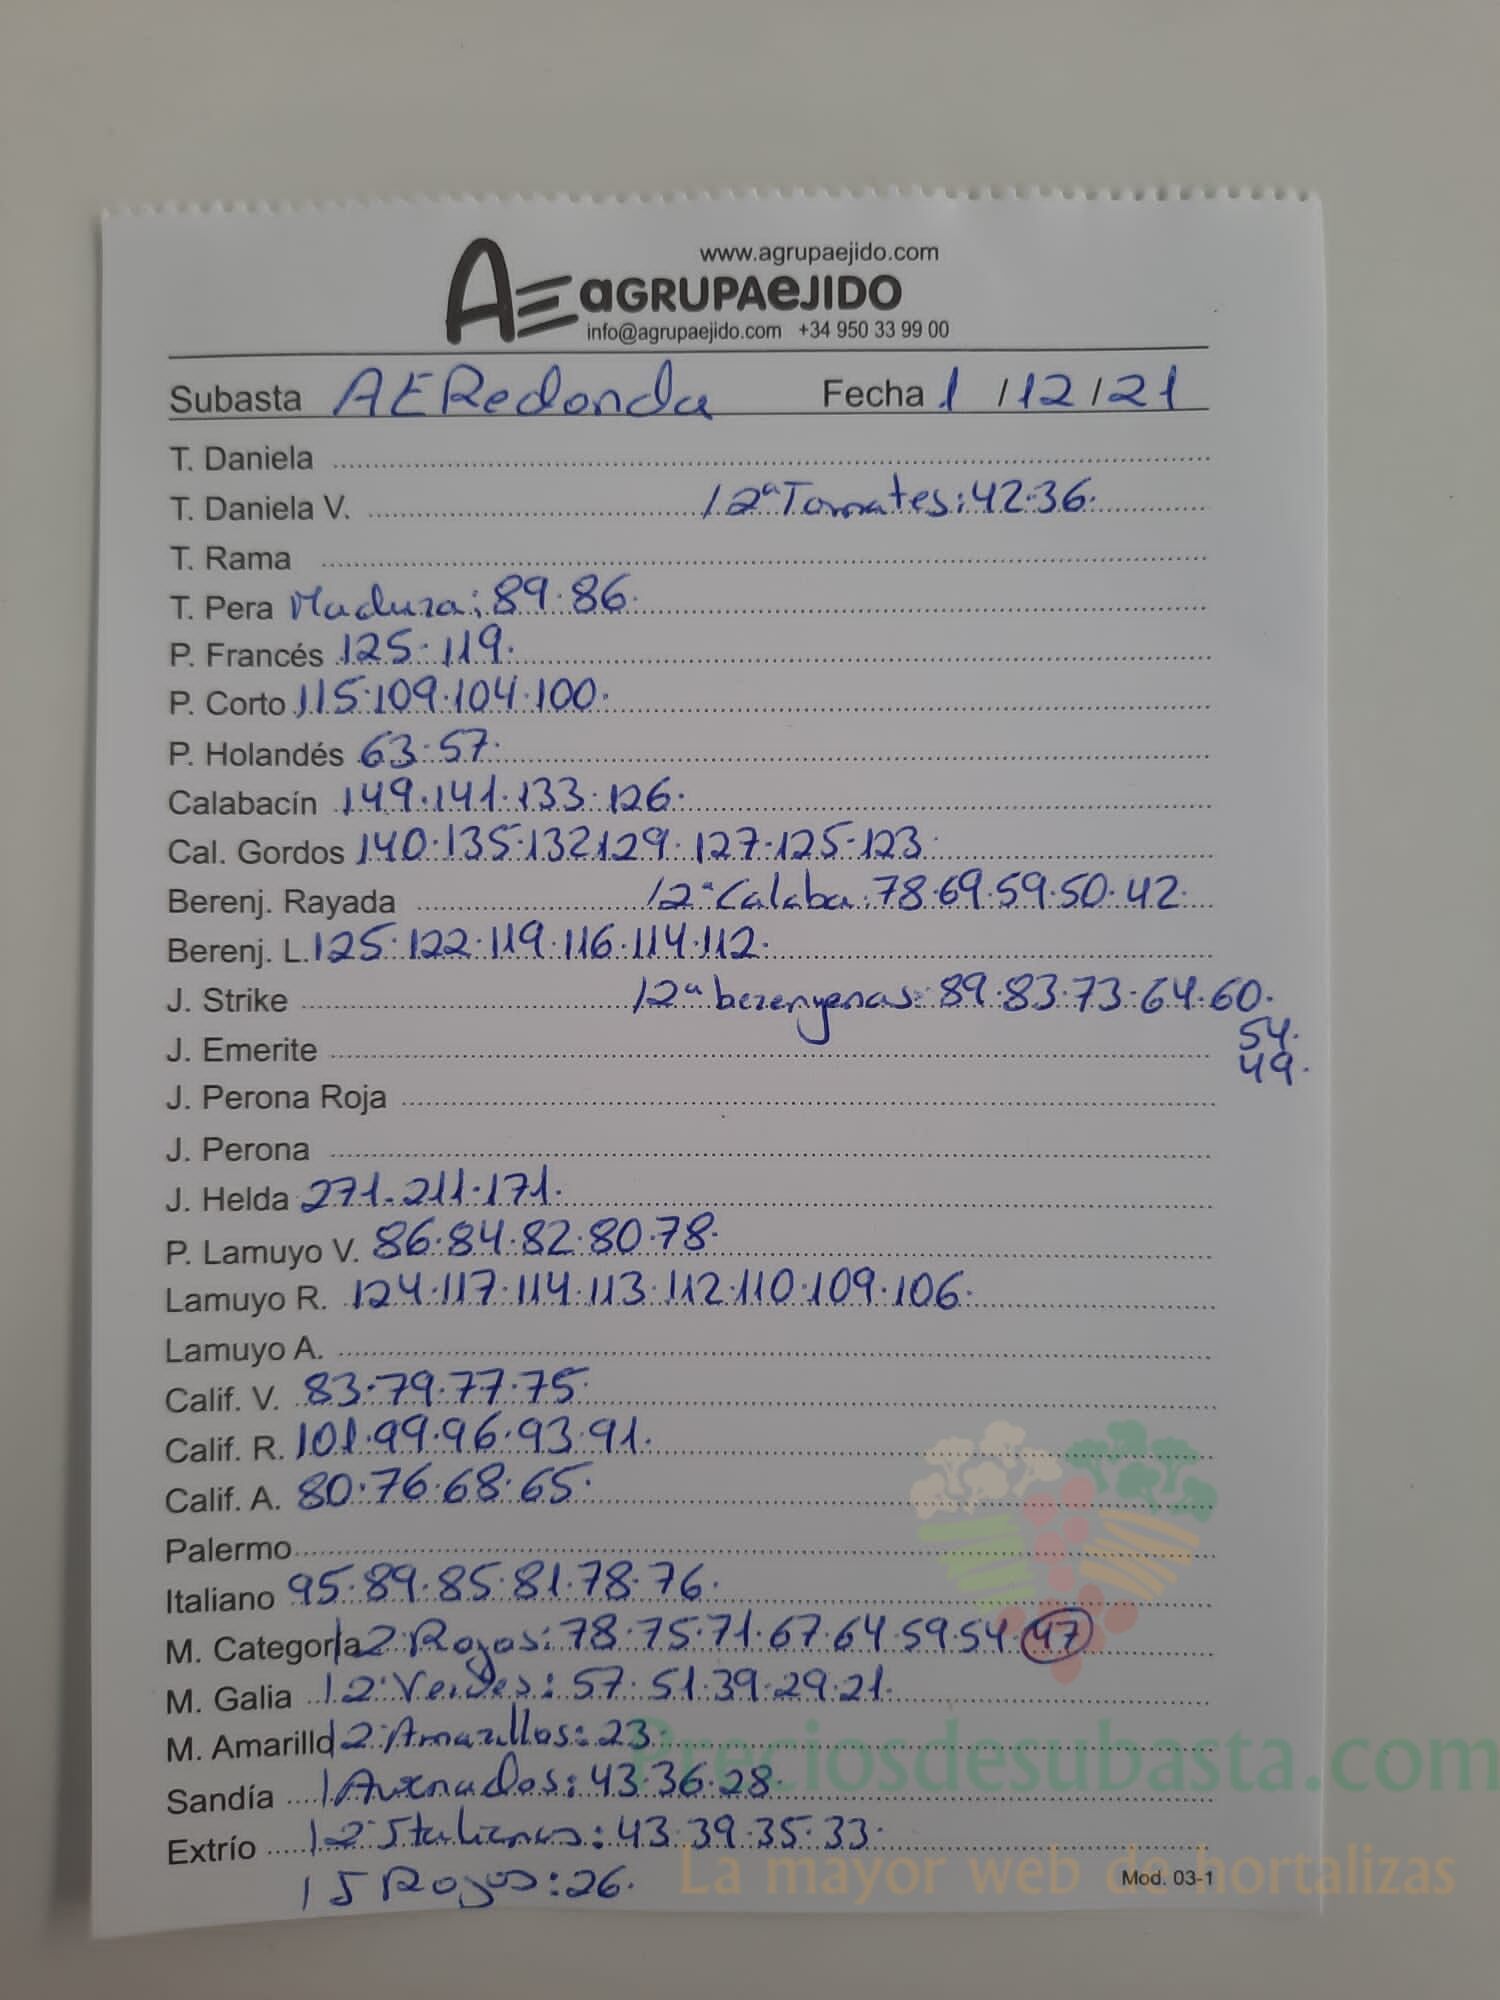 www.agrupaejido.com
AE aGRUPAeJIDO
info@agrupaejido.com +34 950 33 99 00
Subasta AERedonda Fecha 1 /12/21
T. Daniela
T. Daniela V. / 2ª Tomates: 42·36·
T. Rama
T. Pera Madura: 89·86·
P. Francés 125·119·
P. Corto 115·109·104·100·
P. Holandés 63·57·
Calabacín 149·141·133·126·
Cal. Gordos 140·135·132·129·127·125·123·
Berenj. Rayada / 2ª Calaba: 78·69·59·50·42·
Berenj. L. 125·122·119·116·114·112·
J. Strike / 2ª berenjenas: 89·83·73·64·60·
54·
J. Emerite
49·
J. Perona Roja
J. Perona
J. Helda 271·211·171·
P. Lamuyo V. 86·84·82·80·78·
Lamuyo R. 124·117·114·113·112·110·109·106·
Lamuyo A.
Calif. V. 83·79·77·75·
Calif. R. 101·99·96·93·91·
Calif. A. 80·76·68·65·
Palermo
Italiano 95·89·85·81·78·76·
M. Categoría / 2ª Rojos: 78·75·71·67·64·59·54·47
M. Galia / 2ª Verdes: 57·51·39·29·21·
M. Amarillo / 2ª Amarillos: 23·
Preciosdesubasta.com
Sandía / Asurados: 43·36·28·
Extrío / 2ª Italianos: 43·39·35·33·
La mayor web de hortalizas
/ 5 Rojos: 26·
Mod. 03-1